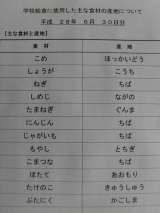 学校給食に使用した主な食材の産地について
平成 28年 6月 30日分
【主な食材と産地】
食材 産地
こめ ほっかいどう
しょうが こうち
ねぎ ちば
しめじ ながの
たまねぎ ぐんま
にんじん ちば
じゃがいも ちば
もやし とちぎ
こまつな ちば
ほたて あおもり
たけのこ きゅうしゅう
ぶたにく かごしま